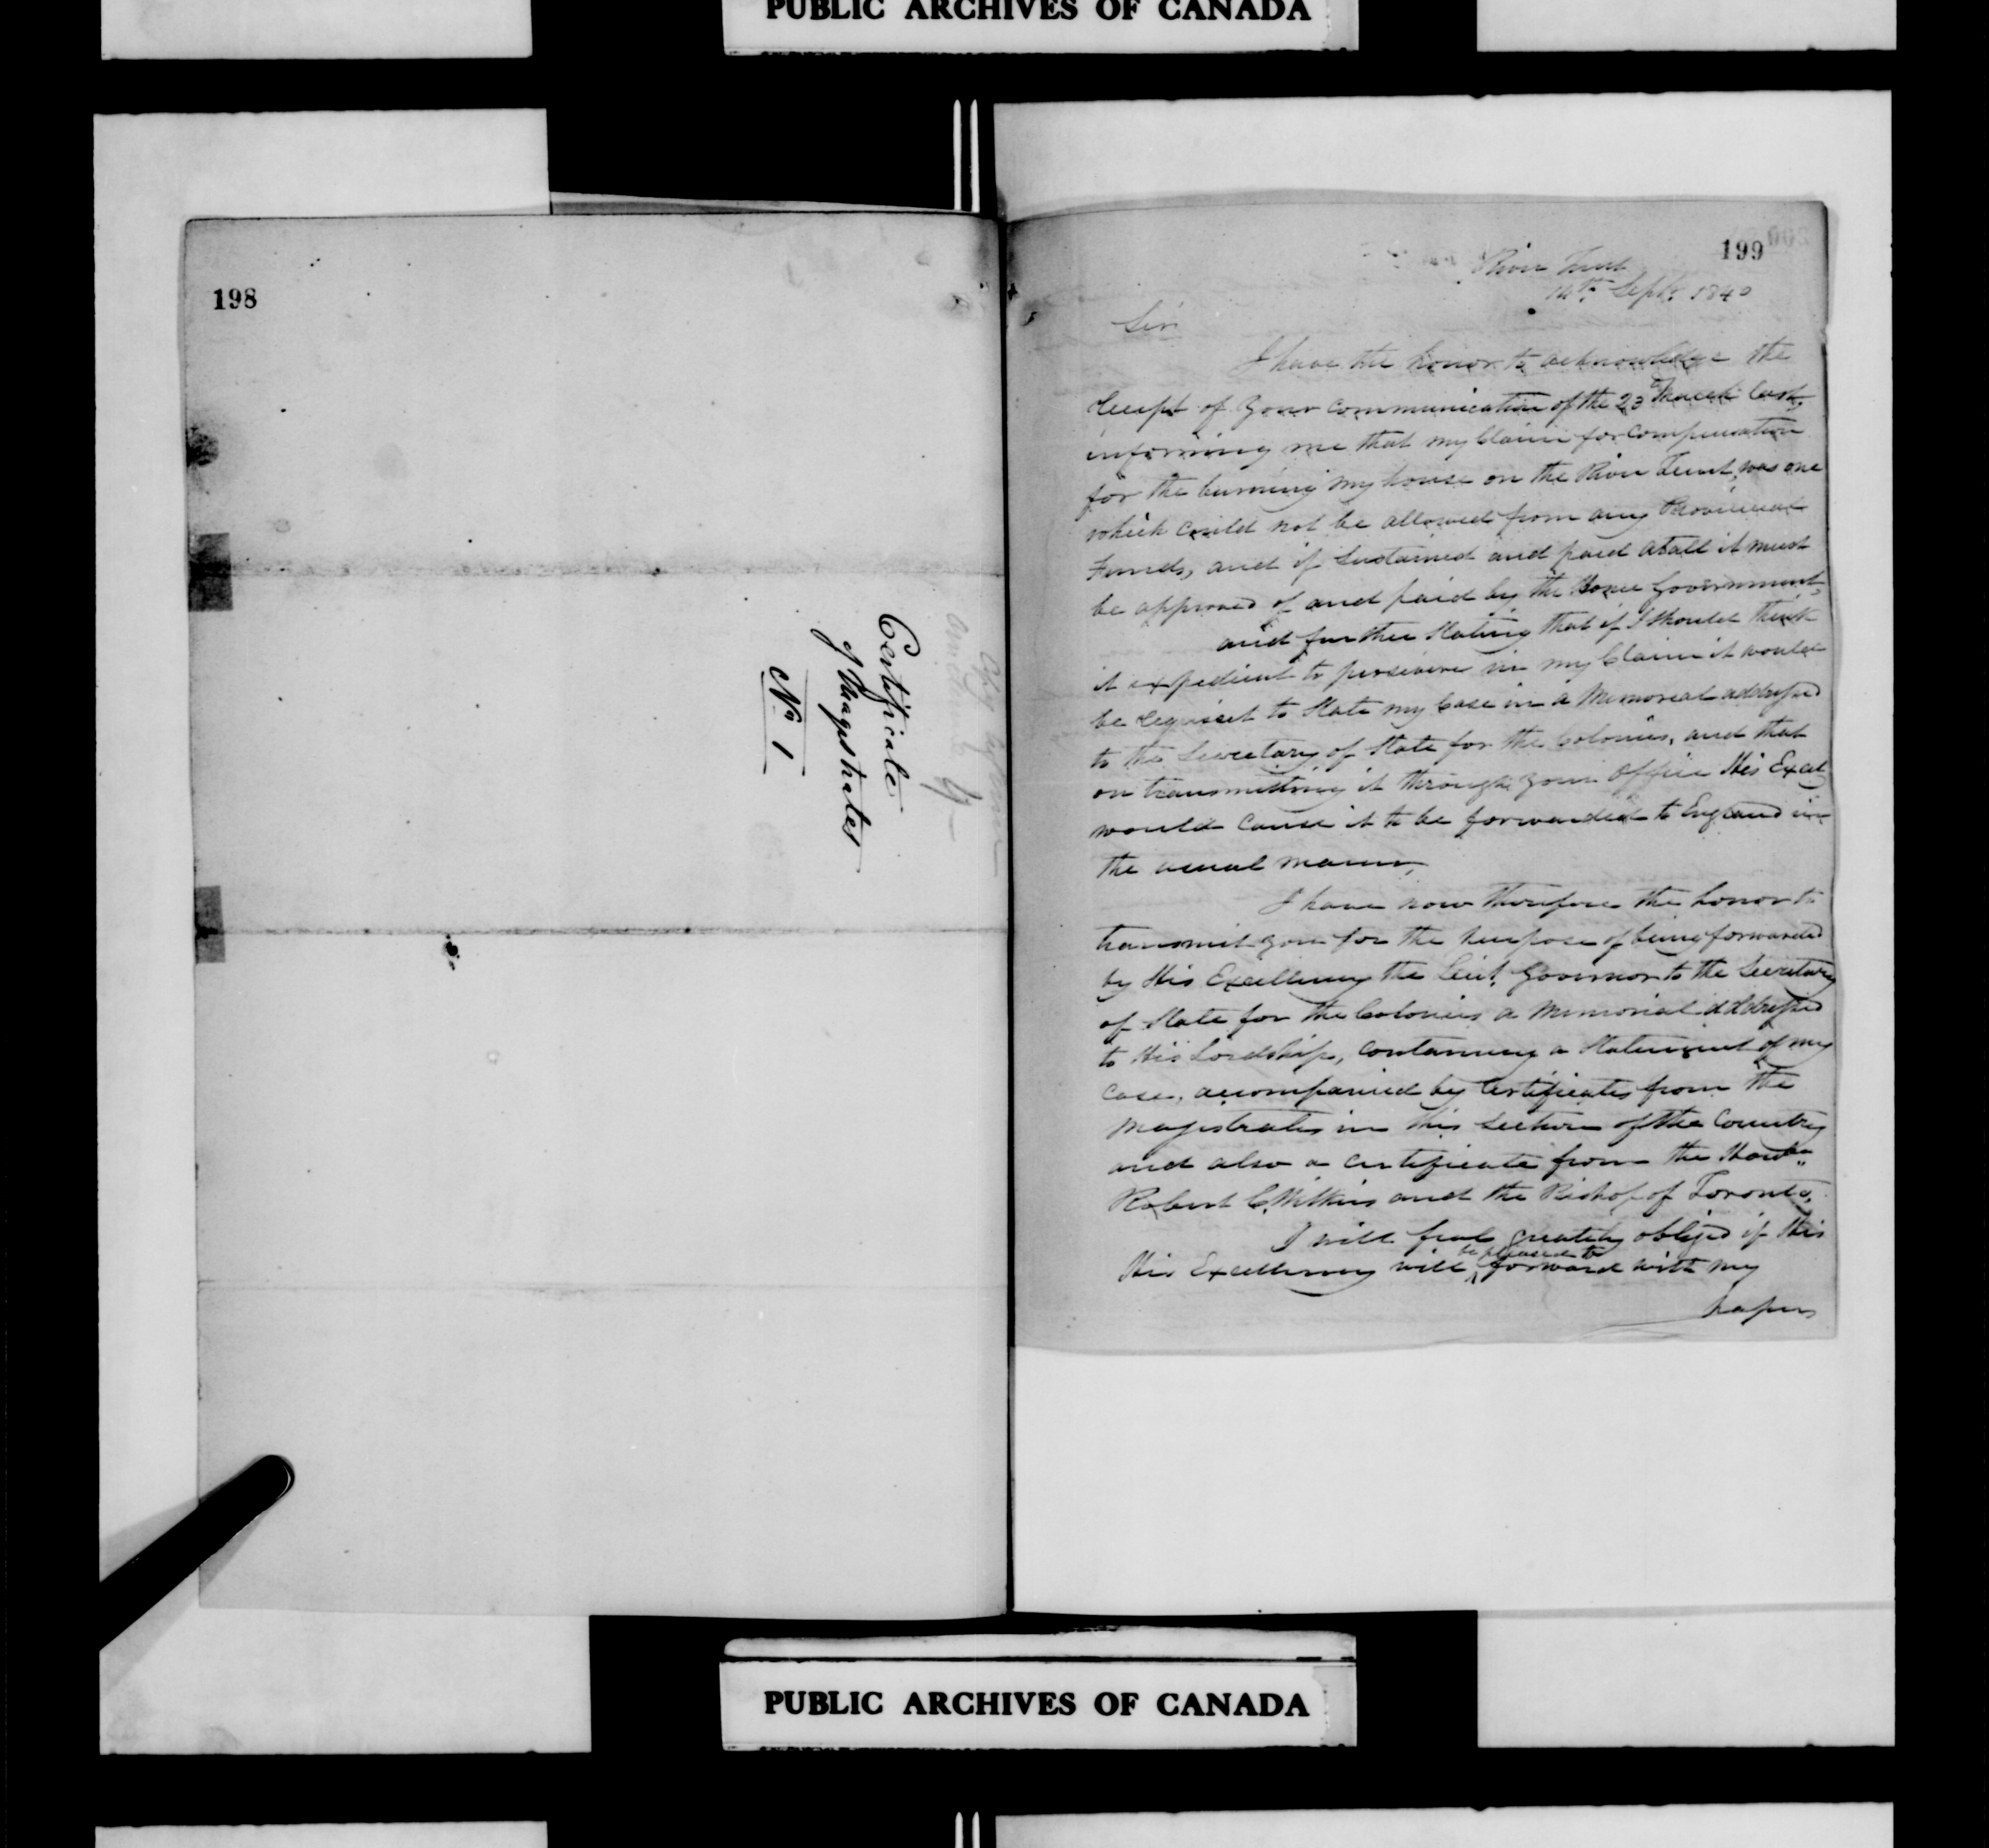 PUBLIC ARCHIVES OF CANADA
198
Certificate
of Magistrates
No 1
199
River Trent
14th Sept. 1840
Sir
I have the honor to acknowledge the
receipt of your communication of the 23d March last,
informing me that my Claim for compensation
for the burning my house on the River Trent, was one
which could not be allowed from any Provincial
Funds, and if sustained and paid atall it must
be approved of and paid by the Home Government,
and further stating that if I should think
it expedient to persevere in my Claim it would
be requisit to state my Case in a Memorial addressed
to the Secretary of State for the Colonies, and that
on transmitting it through your Office His Excely
would cause it to be forwarded to England in
the usual manner,
I have now therefore the honor to
transmit you for the purpose of being forwarded
by His Excellency the Leiut. Governor to the Secretary
of State for the Colonies a Memorial addressed
to His Lordship, containing a Statement of my
Case, accompanied by Certificates from the
Magistrates in this section of the Country
and also a certificate from the Honble
Robert C. Wilkins and the Bishop of Toronto,
I will feel greatly obliged if His
His Excellency will be pleased to forward with my
papers
PUBLIC ARCHIVES OF CANADA